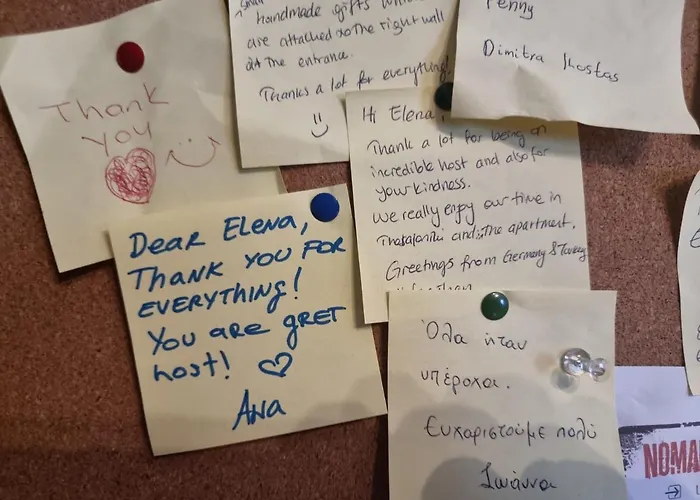 Thank
you
small
handmade gifts
are attached to the right wall
at the entrance.
Thanks a lot for everything!
Penny
Dimitra Kostas
Hi Elena,
Thank a lot for being an
incredible host and also for
your kindness.
we really enjoy our time in
and the apartment.
Greetings from Germany & Turkey
DEAR ELENA,
THANK YOU FOR
EVERYTHING!
YOU ARE GRET
host!
ANA
Όλα ήταν
υπέροχα.
Ευχαριστούμε πολύ
Ιωάννα
NOMA